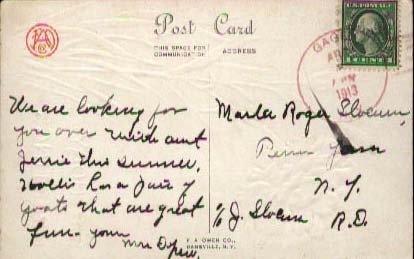 Post Card
THIS SPACE FOR
COMMUNICATION
ADDRESS
U.S. POSTAGE
1 CENT 1
GAGE
1913
N.Y.
We are looking for
you over with aunt
Jennie this summer.
Hollis has a pair of
goats that are great
fun. your
Mrs Depew.
Master Roger Slocum,
Penn Yann
N. Y.
c/o J. Slocum R.D.
F. A. OWEN CO.,
DANSVILLE, N.Y.